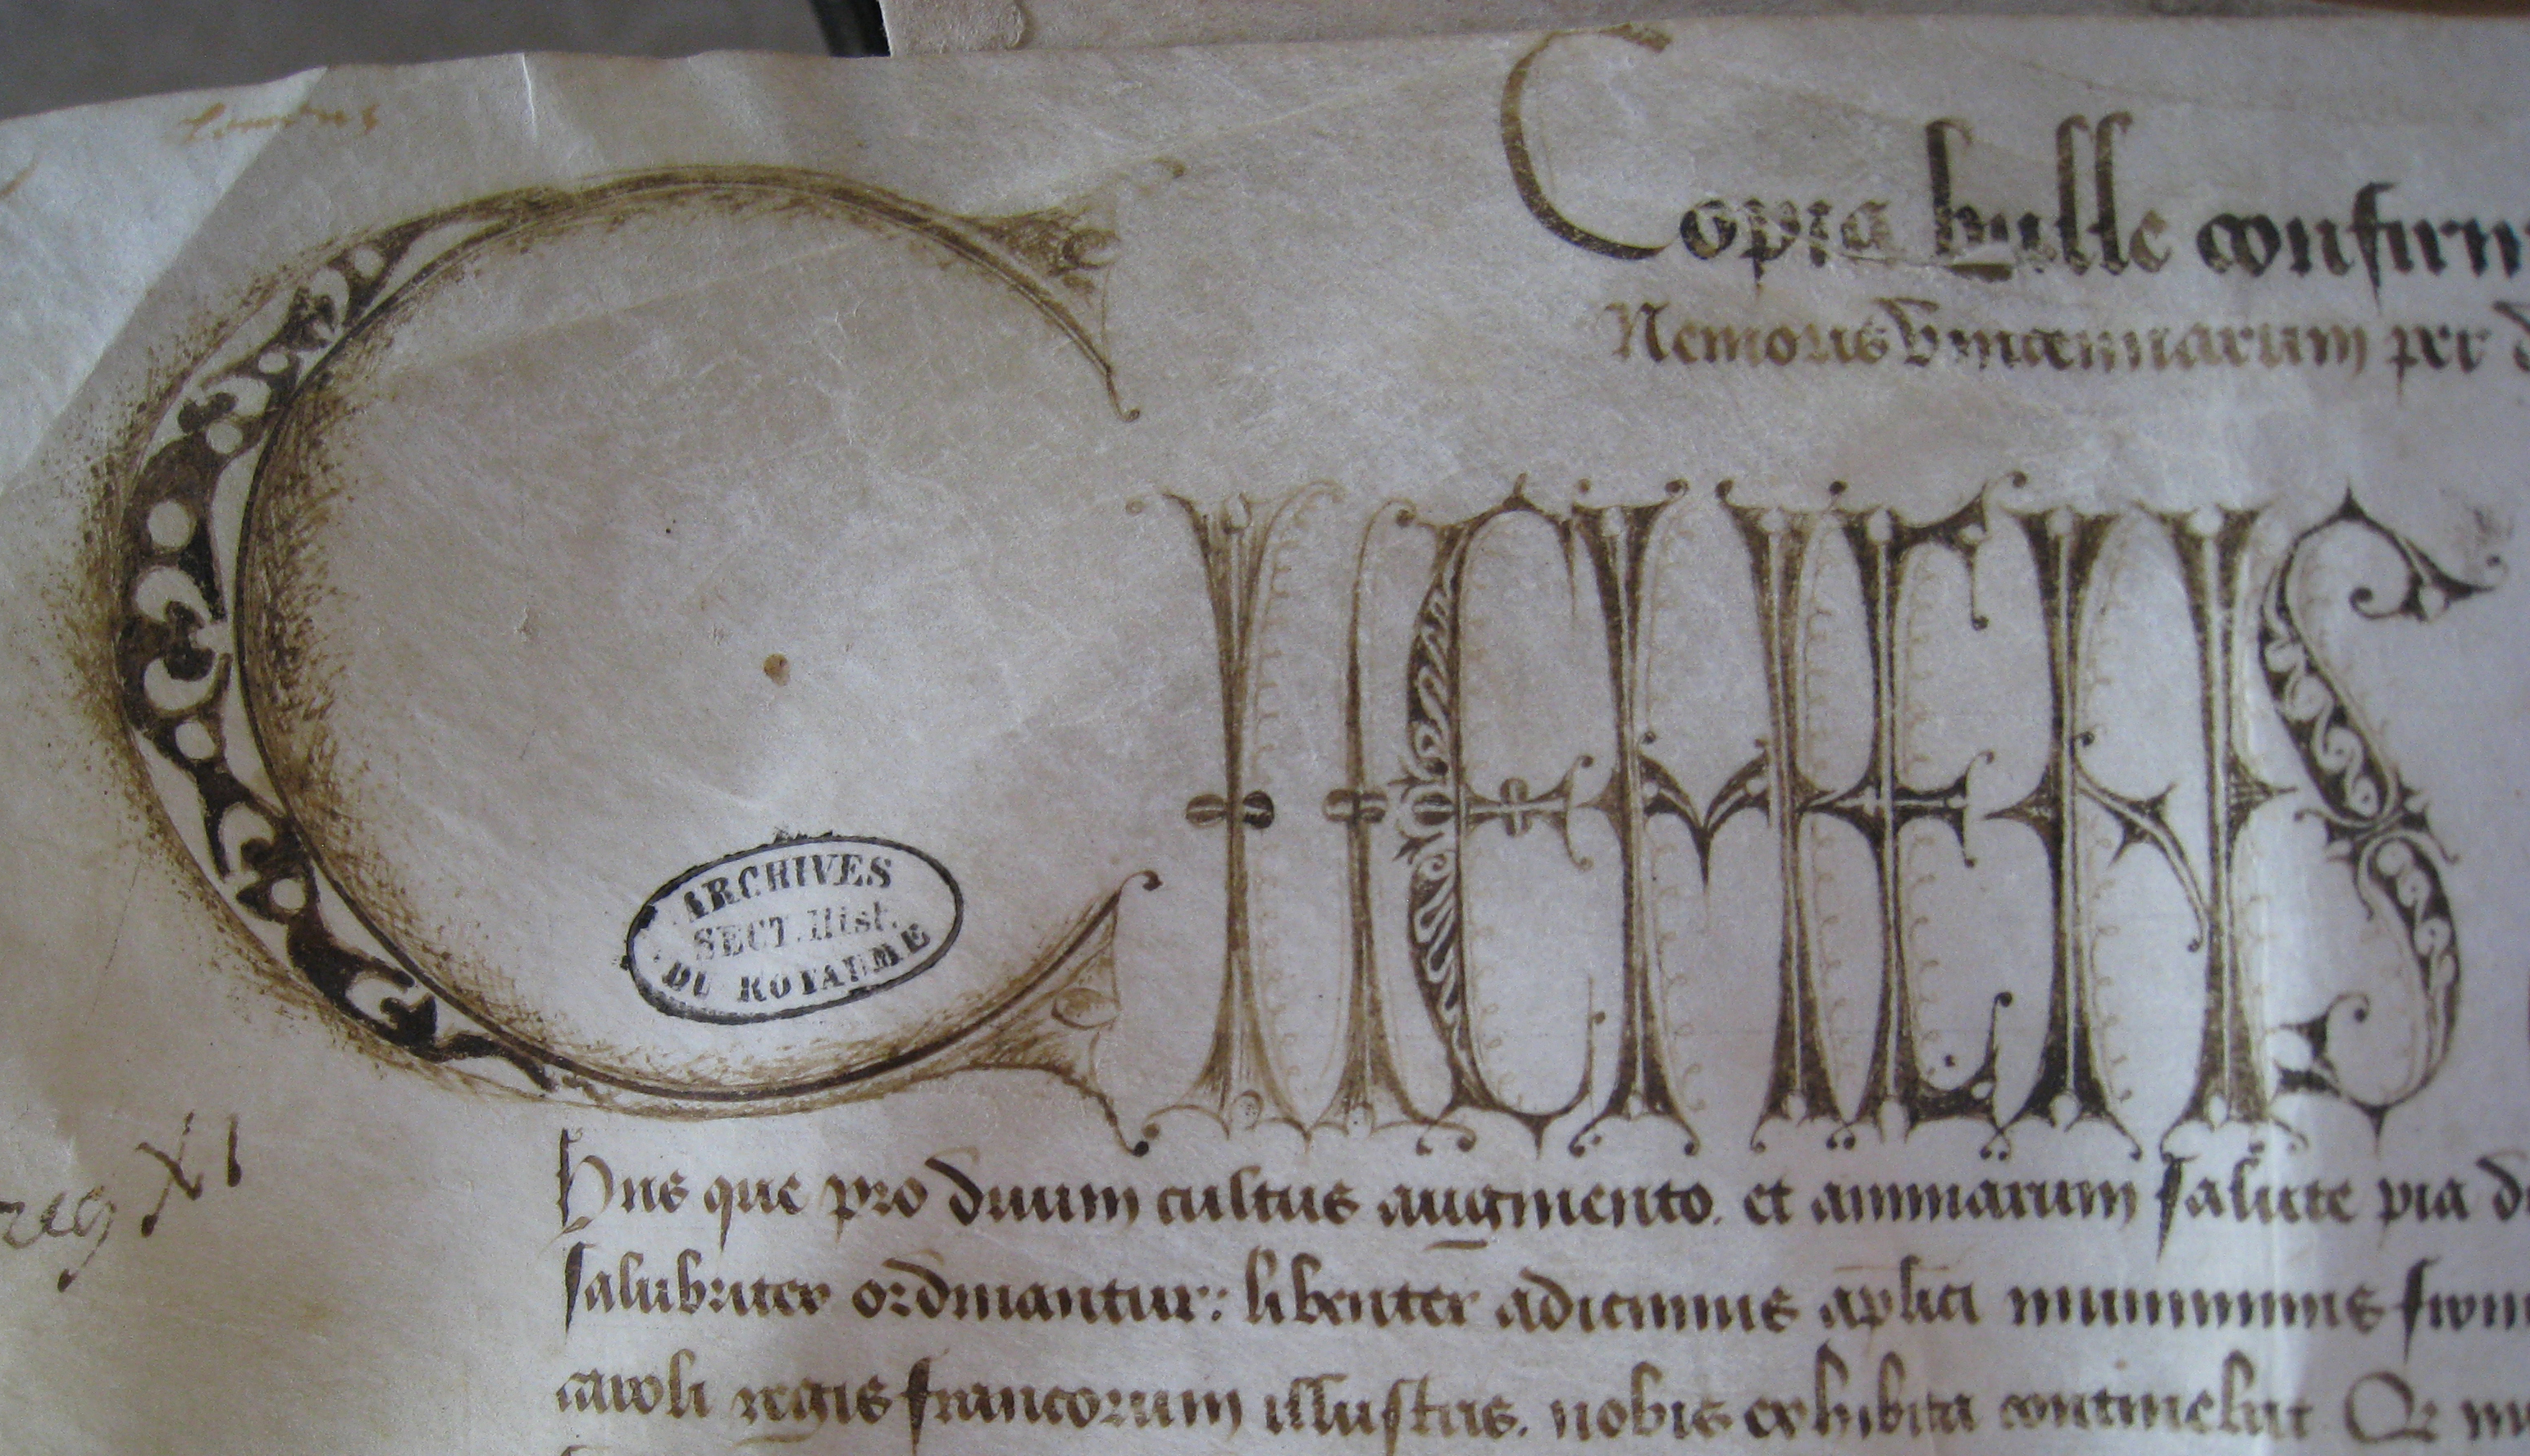 Copia bulle confirm
Nemoris vincennarum per d
CLEMENS
ARCHIVES
SECT. Hist.
DU ROYAUME
reg XI
Hiis que pro diuini cultus augmento. et animarum salute pia d
salubriter ordinantur: libenter adicimus aplici muniminis firm
caroli regis francorum illustris. nobis exhibita continebat Q